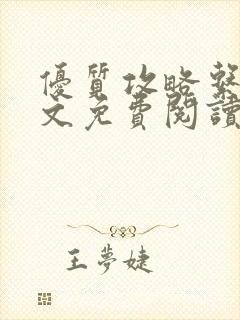 優質攻略繫
文免費閱讀
王夢婕